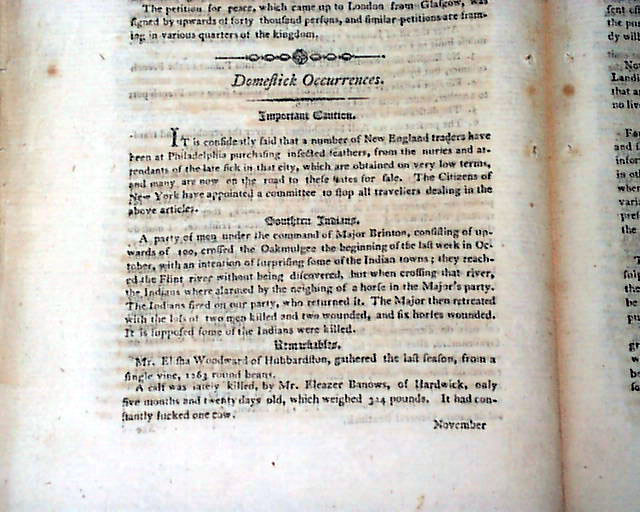 The petition for peace, which came up to London from Glasgow, was
signed by upwards of forty thousand persons, and similar petitions are fram-
ing in various quarters of the kingdom.
Domestick Occurrences.
Important Caution.
IT is confidently said that a number of New England traders have
been at Philadelphia purchasing infected feathers, from the nurses and at-
tendants of the late sick in that city, which are obtained on very low terms,
and many are now on the road to these states for sale. The Citizens of
New York have appointed a committee to stop all travellers dealing in the
above articles.
Southern Indians.
A party of men under the command of Major Brinton, consisting of up-
wards of 100, crossed the Oakmulgee the beginning of the last week in Oc-
tober, with an intention of surprising some of the Indian towns; they reach-
ed the Flint river without being discovered, but when crossing that river,
the Indians where alarmed by the neighing of a horse in the Major's party.
The Indians fired on our party, who returned it. The Major then retreated
with the loss of two men killed and two wounded, and six horses wounded.
It is supposed some of the Indians were killed.
Remarkables.
Mr. Elisha Woodward of Hubbardston, gathered the last season, from a
single vine, 1263 round beans.
A calf was lately killed, by Mr. Eleazer Banows, of Hardwick, only
five months and twenty days old, which weighed 324 pounds. It had con-
stantly sucked one cow.
November